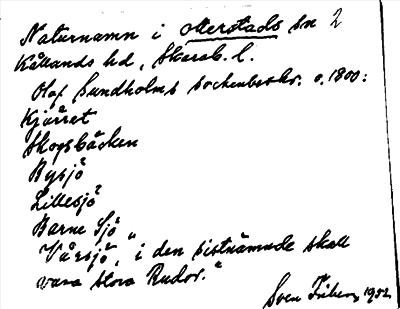 Naturnamn i Otterstads sn 2
Kållands hd, Skarab. l.
Olof Sundholms sockenbeskr. o. 1800:
Kjärret
Skogsbäcken
Bysjö
Lillesjö
Barne Sjö
"Vårsjö", i den sistnämnde skall
vara stora Rudor."
Sven 1952